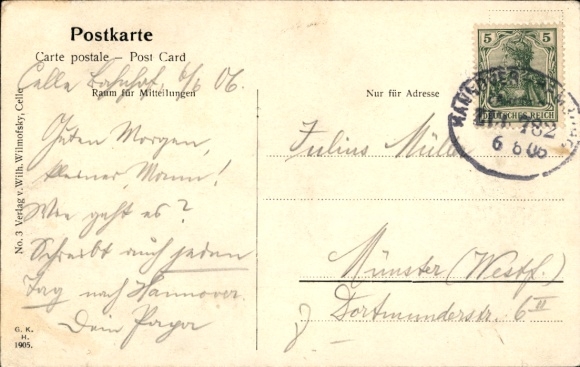 Postkarte
Carte postale – Post Card
Celle Bahnhof, 6/8 06.
Raum für Mitteilungen
Guten Morgen,
kleiner Mann!
Wie geht es?
Schreibt auch jeden
Tag nach Hannover.
Dein Papa
No. 3 Verlag v. Wilh. Wilmofsky, Celle
G. K.
H.
1905.
Nur für Adresse
5 5
DEUTSCHES REICH
HANNOVER
ZUG 782
6 8 06
Julius Müller
Münster (Westf.)
Dortmunderstr. 6 II